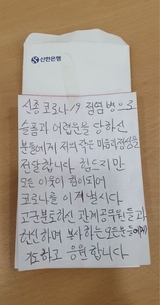 신한은행
신종 코로나19 질염병으로
슬픔과 어렵문을 당하신
분들에게 저의 작은 마음의 정성을
전달합니다. 힘드지만
모든 이웃이 힘이되어
코로나를 이겨냅시다
고군분토하신 관계공무원들과
헌신하며 봉사하는 모든분들에게
기도하고 응원합니다